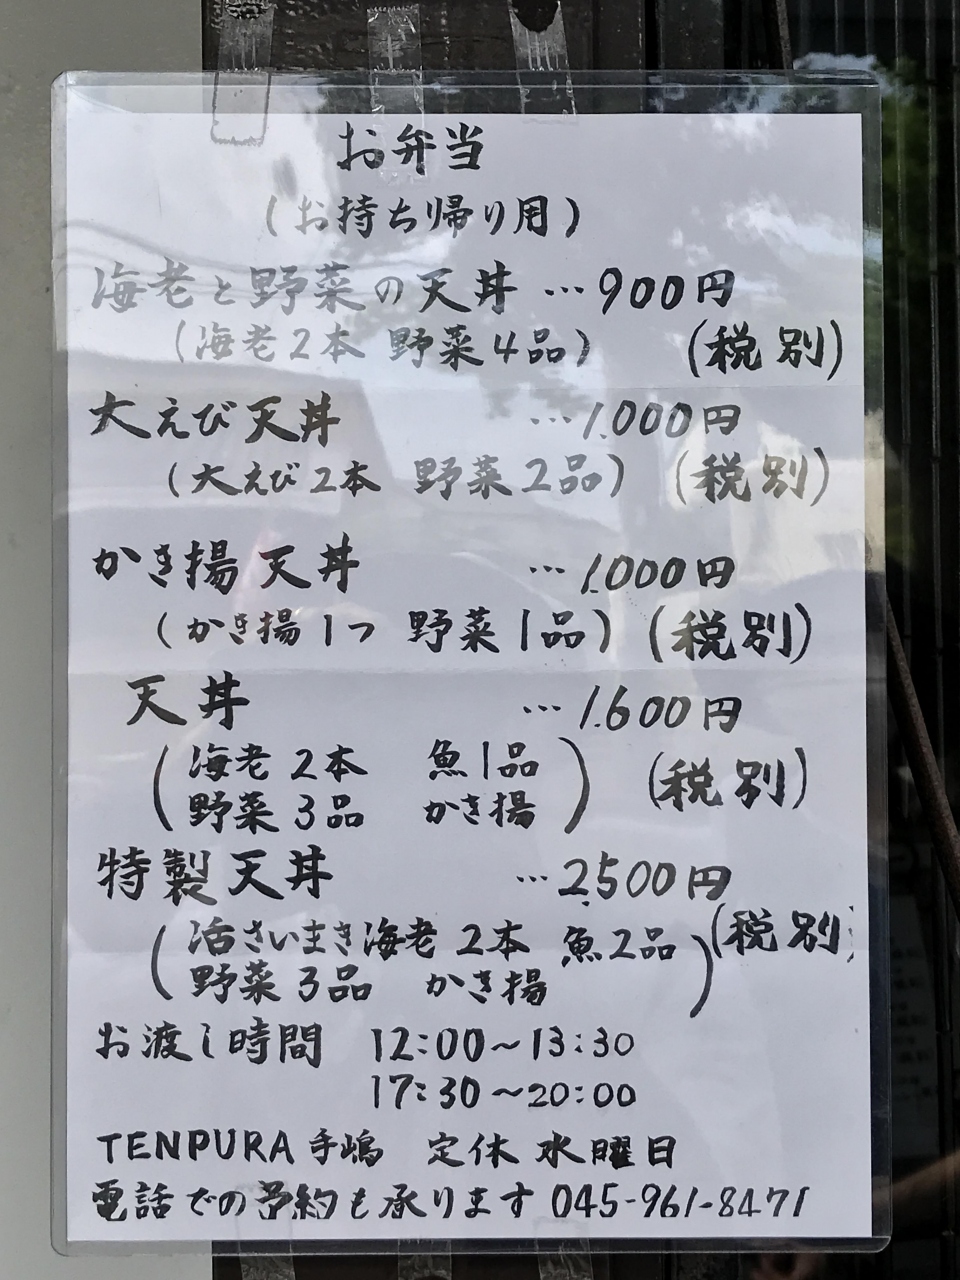 お弁当
(お持ち帰り用)
海老と野菜の天丼 …900円
(海老2本 野菜4品) (税別)
大えび天丼 …1.000円
(大えび2本 野菜2品) (税別)
かき揚天丼 …1.000円
(かき揚1つ 野菜1品) (税別)
天丼 …1.600円
(海老2本 魚1品
野菜3品 かき揚) (税別)
特製天丼 …2.500円
(活さいまき海老2本 魚2品
野菜3品 かき揚) (税別)
お渡し時間 12:00~13:30
17:30~20:00
TENPURA手嶋 定休 水曜日
電話での予約も承ります 045-961-8471